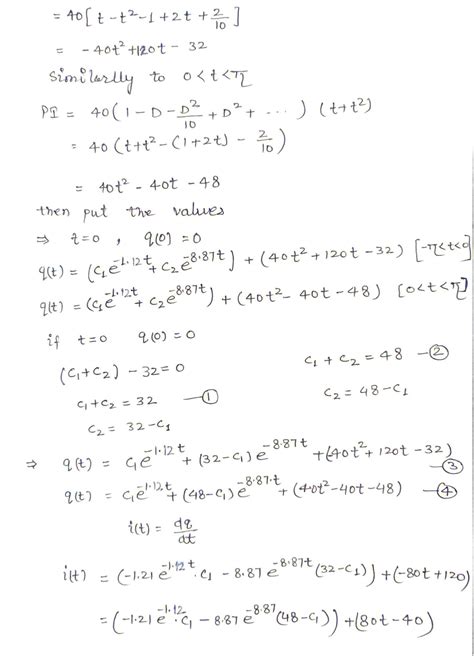 = 40[t - t² - 1 + 2t + 2/10]
= - 40t² + 120t - 32
Similarlly to 0 < t < π
PI = 40(1 - D - D²/10 + D² + ...) (t + t²)
= 40 (t + t² - (1 + 2t) - 2/10)
= 40t² - 40t - 48
then put the values
⇒ t=0 , q(0) = 0
q(t) = (c₁e^-1.12t + c₂e^-8.87t) + (40t² + 120t - 32) [-π<t<0]
q(t) = (c₁e^-1.12t + c₂e^-8.87t) + (40t² - 40t - 48) [0<t<π]
if t=0 q(0) = 0
(c₁ + c₂) - 32 = 0 c₁ + c₂ = 48 - ②
c₁ + c₂ = 32 - ① c₂ = 48 - c₁
c₂ = 32 - c₁
⇒ q(t) = c₁e^-1.12t + (32 - c₁) e^-8.87t + (40t² + 120t - 32) - ③
q(t) = c₁e^-1.12t + (48 - c₁) e^-8.87t + (40t² - 40t - 48) - ④
i(t) = dq/dt
i(t) = (-1.21 e^-1.12t . c₁ - 8.87 e^-8.87t (32 - c₁)) + (-80t + 120)
= (-1.21 e^-1.12 . c₁ - 8.87 e^-8.87 (48 - c₁)) + (80t - 40)